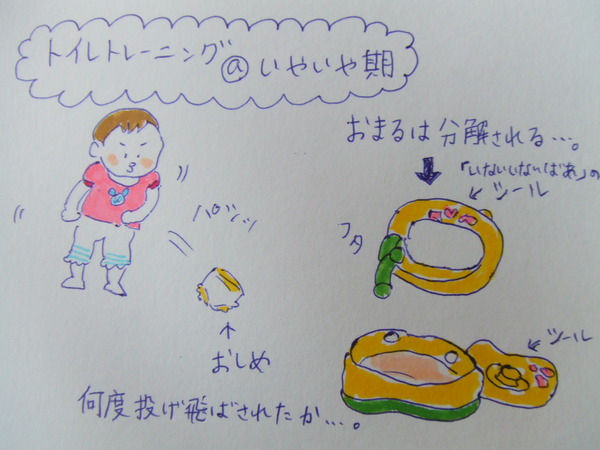 トイレトレーニング@いやいや期
おまるは分解される…。
「いないいないばあ」の
ツール
フタ
パシッ
おしめ
ツール
何度投げ飛ばされたか…。